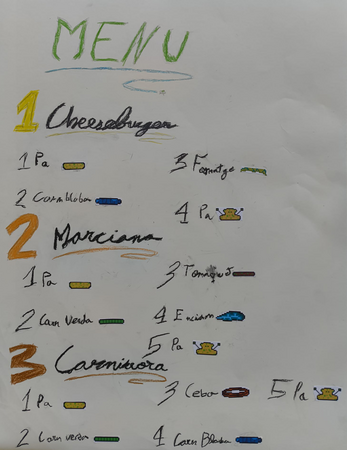 MENU
1 Cheeseburger
1 Pa
3 Formatge
2 Carn blaba
4 Pa
2 Marciana
1 Pa
3 Tomaquet
2 Carn Verda
4 Enciam
5 Pa
3 Carnívora
1 Pa
3 Ceba
5 Pa
2 Carn verda
4 Carn Blaba